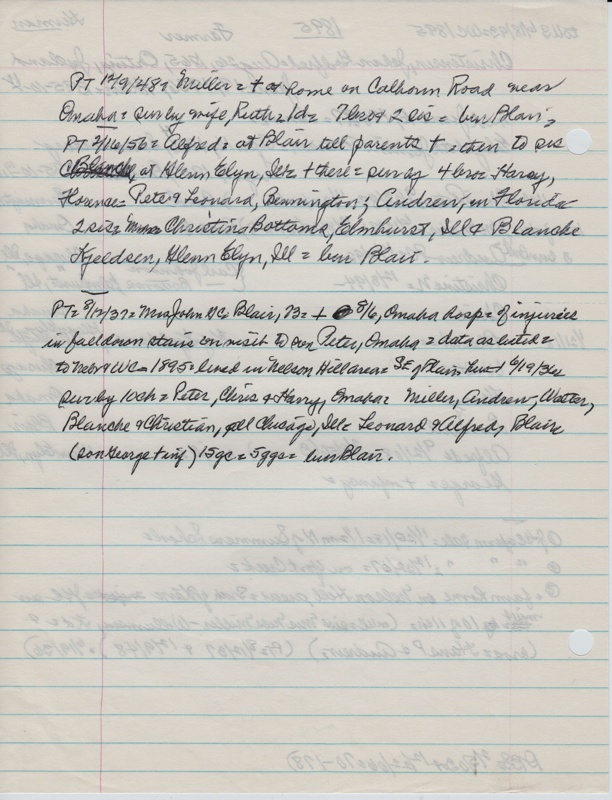 PT 12/9/48 = Miller = + at home on Calhoun Road near
Omaha = sur by wife, Ruth = 1d = 7bro & 2 sis = bur Blair,
PT 2/16/56 = Alfred = at Blair till parents + = then to sis
Blanche, at Glenn Elyn, Ill = + there = sur by 4 bro = Harry,
Florence = Pete & Leonard, Bennington; Andrew, in Florida
2 sis = Christine Bottoms, Elmhurst, Ill & Blanche
Kjeldsen, Glenn Elyn, Ill = bur Blair.
PT = 8/12/37 = Mrs John NC Blair, 73 = + 8/6, Omaha hosp = of injuries
in fall down stairs on visit to son Peter, Omaha = data as listed =
to Nebr & WC = 1895 = lived in Nelson Hill area = SE of Plain, hus + 6/19/36
sur by 10 ch = Peter, Chris & Harry, Omaha = Miller, Andrew, Walter,
Blanche & Christian, all Chicago, Ill = Leonard & Alfred, Blair
(son George + inf) 15gc = 5ggs = bur Blair.